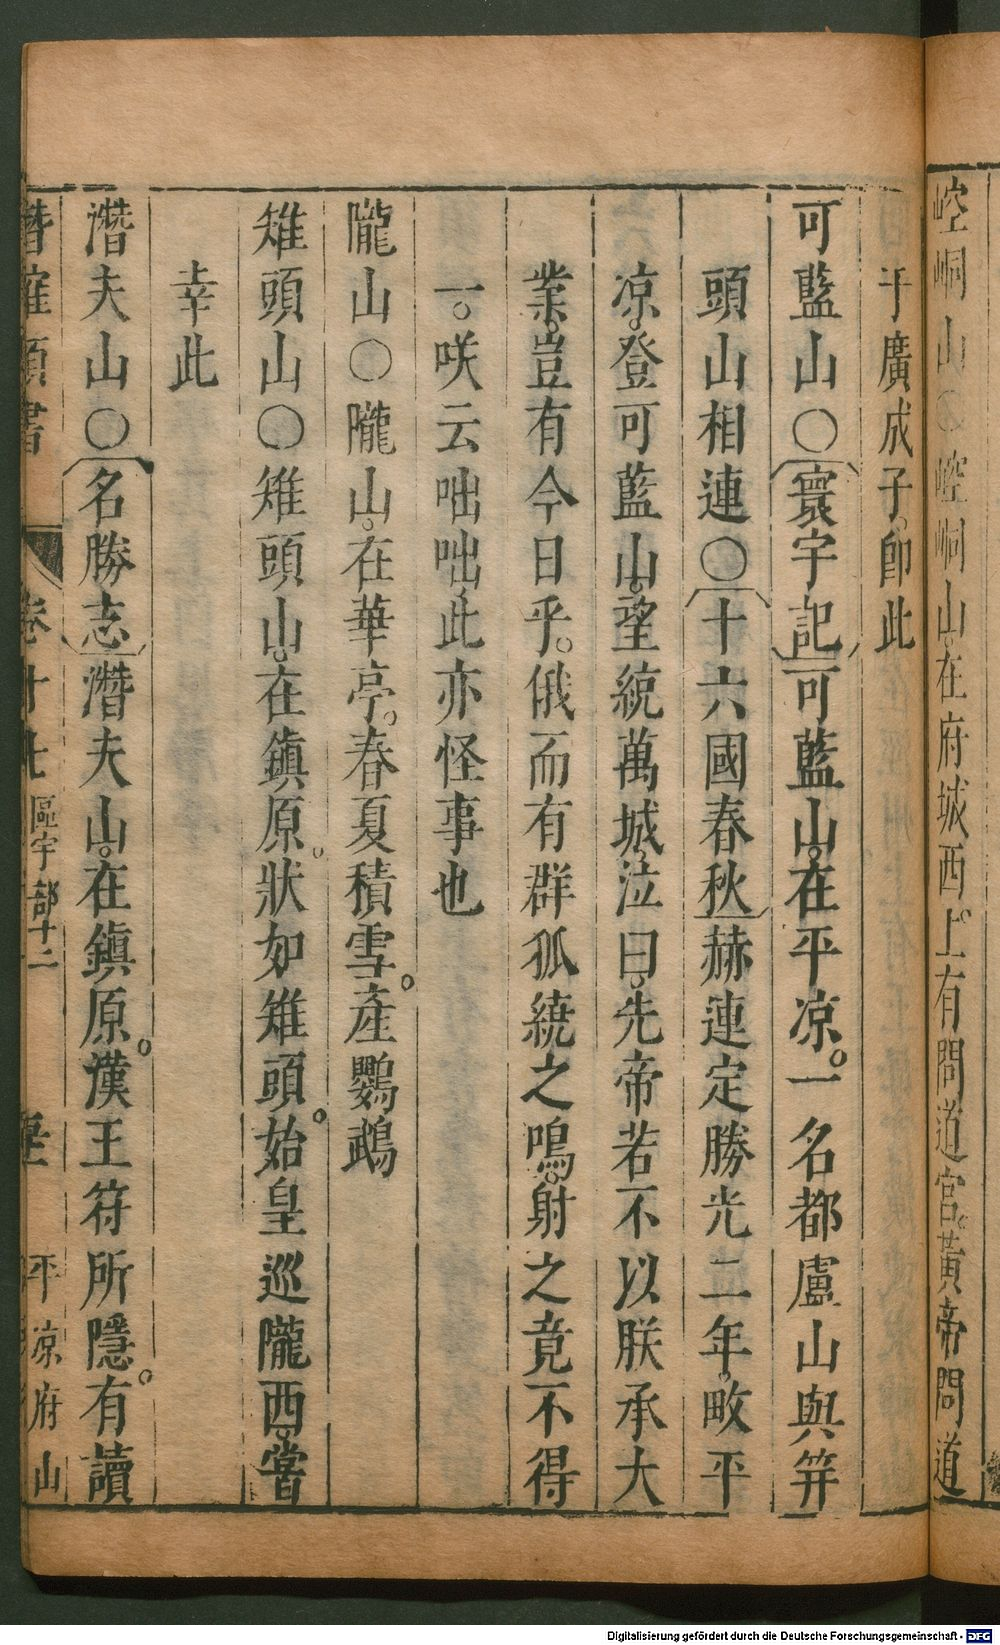 崆峒山○崆峒山在府城西上有問道宫黃帝問道
于廣成子即此
可藍山○寰宇記可藍山在平凉。一名都盧山與笄
頭山相連○十六國春秋赫連定勝光二年畋平
凉登可藍山望統萬城泣曰先帝若不以朕承大
業豈有今日乎。俄而有群狐繞之鳴射之竟不得
一。咲云咄咄此亦怪事也
隴山○隴山。在華亭。春夏積雪。產鸚鵡
雉頭山○雉頭山。在鎮原。狀如雉頭。始皇巡隴西嘗
幸此
潛夫山○名勝志潛夫山在鎮原。漢王符所隱。有讀
潛確類書 卷十七 區宇部十二 平凉府山
Digitalisierung gefördert durch die Deutsche Forschungsgemeinschaft - DFG